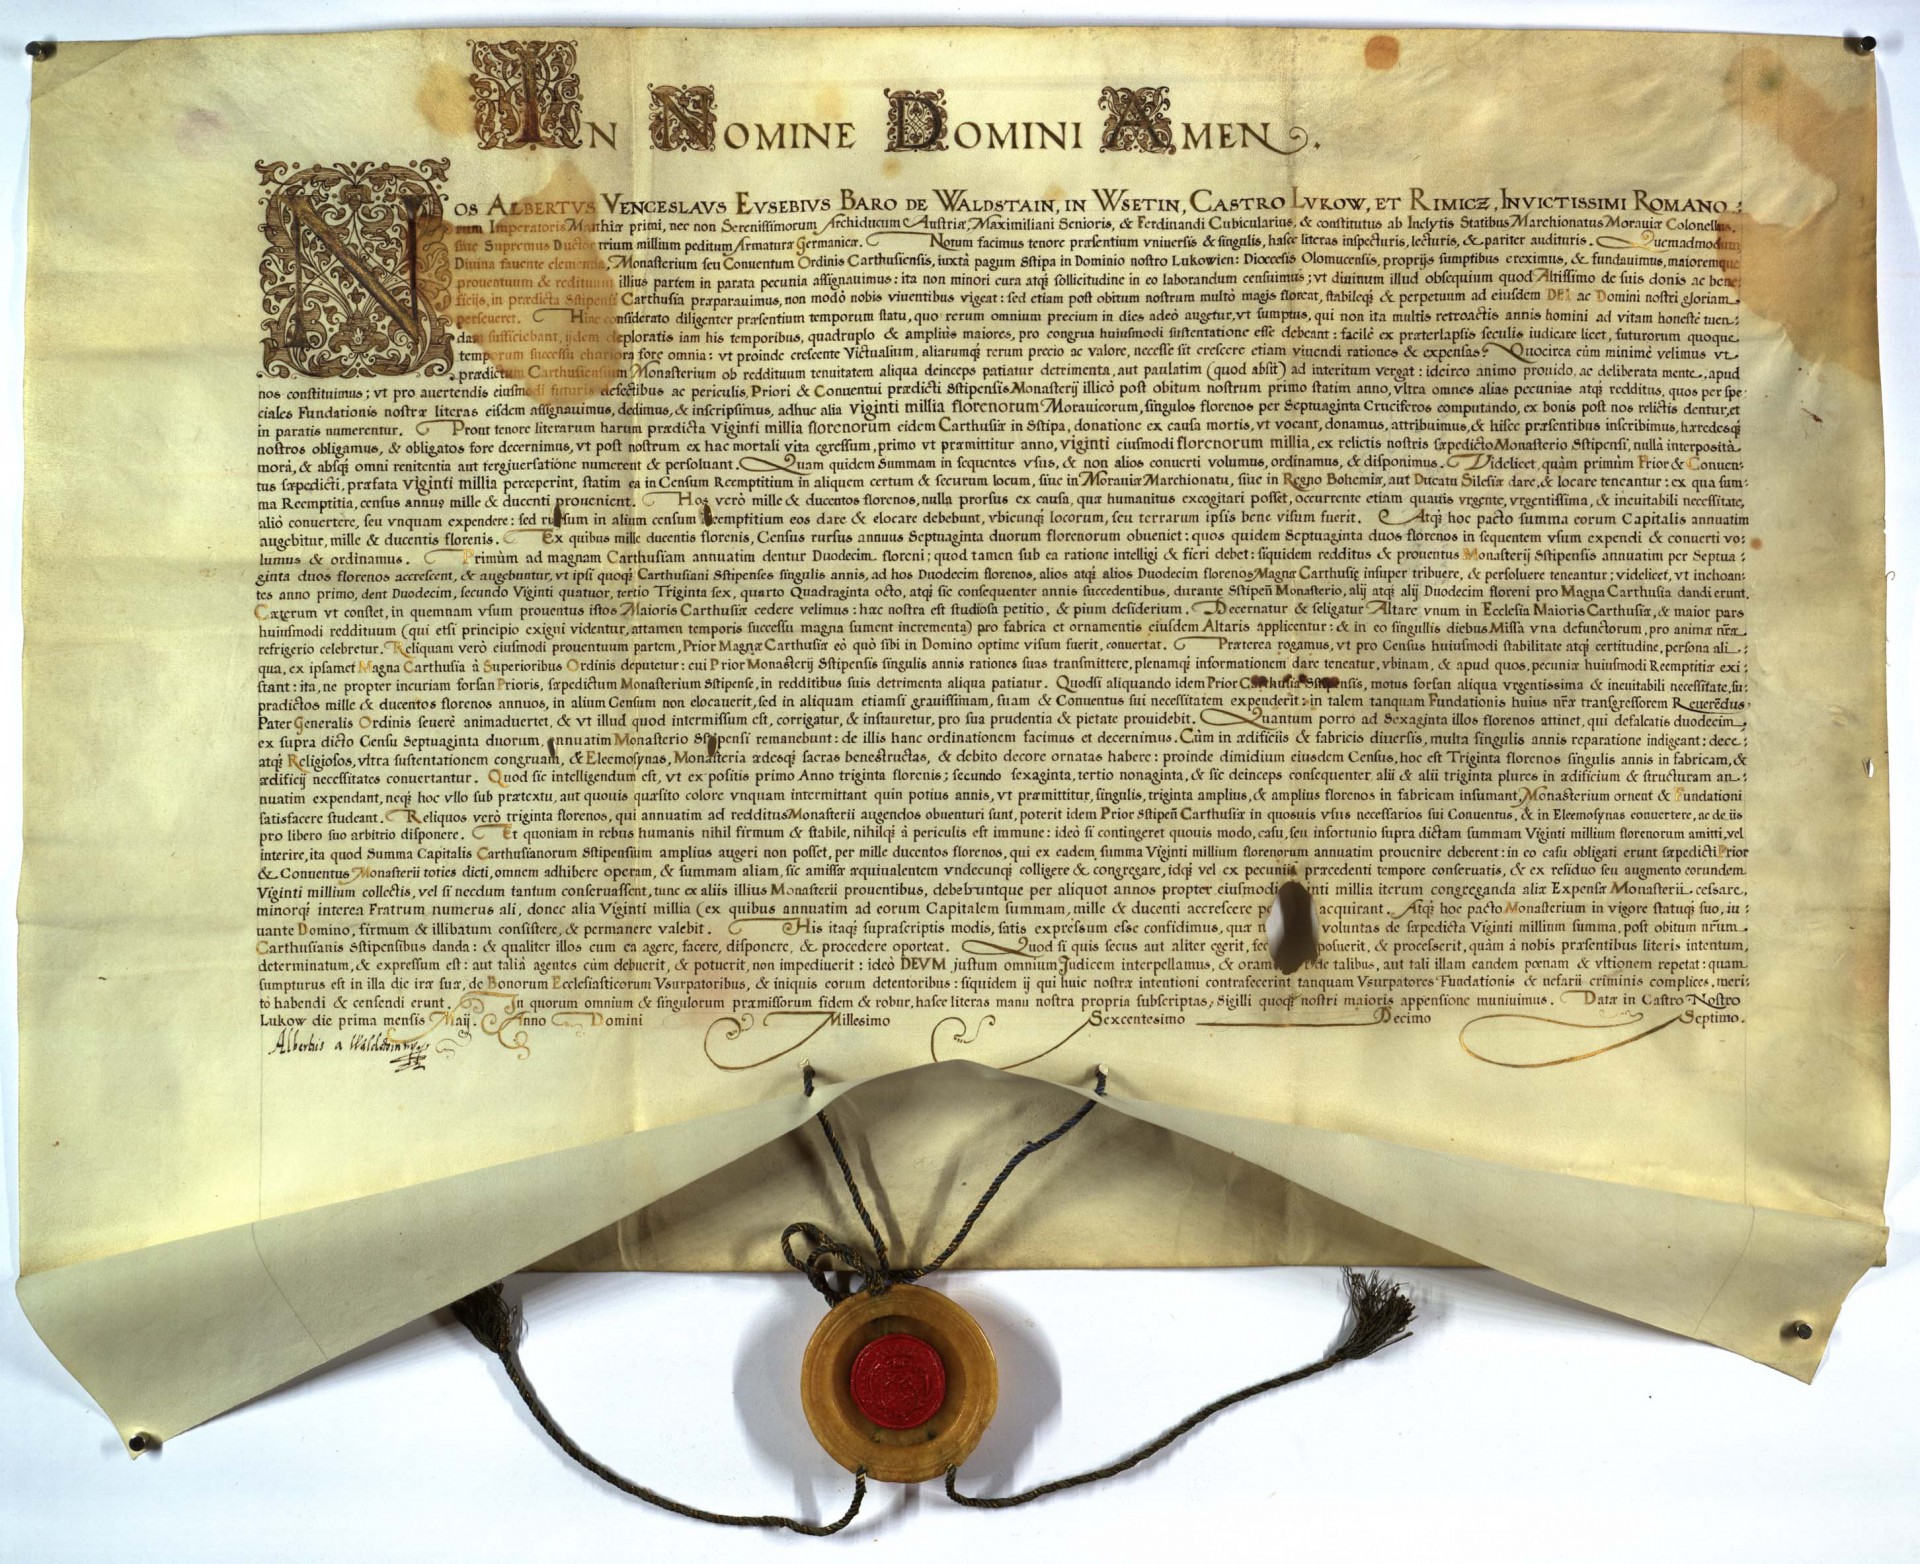 IN NOMINE DOMINI AMEN.
NOS ALBERTVS VENCESLAVS EVSEBIVS BARO DE WALDSTAIN, IN WSETIN, CASTRO LVKOW, ET RIMICZ, INVICTISSIMI ROMANO:
rum Imperatoris Matthiæ primi, nec non Serenissimorum Archiducum Austriæ, Maximiliani Senioris, & Ferdinandi Cubicularius, & constitutus ab Inclytis Statibus Marchionatus Morauiæ Colonellus,
siue Supremus Ductor trium millium peditum Armaturæ Germanicæ. Notum facimus tenore præsentium vniuersis & singulis, hasce literas inspecturis, lecturis, & pariter audituris. Quemadmodum
Diuina fauente clementia, Monasterium seu Conuentum Ordinis Carthusiensis, iuxtà pagum Sstipa in Dominio nostro Lukowien: Diœcesis Olomucensis, proprijs sumptibus ereximus, & fundauimus, maioremque
prouentuum & redituum illius partem in parata pecunia assignauimus: ita non minori cura atqꝫ sollicitudine in eo laborandum censuimus; vt diuinum illud obsequium quod Altissimo de suis donis ac bene:
ficijs, in prædicta Sstipensi Carthusia præparauimus, non modò nobis viuentibus vigeat: sed etiam post obitum nostrum multò magis floreat, stabileqꝫ & perpetuum ad eiusdem DEI ac Domini nostri gloriam
perseueret. Hinc considerato diligenter præsentium temporum statu, quo rerum omnium precium in dies adeò augetur, vt sumptus, qui non ita multis retroactis annis homini ad vitam honestè tuen:
dam sufficiebant, ijdem deploratis iam his temporibus, quadruplo & amplius maiores, pro congrua huiusmodi sustentatione esse debeant: facilè ex præterlapsis seculis iudicare licet, futurorum quoque
temporum successu chariora fore omnia: vt proinde crescente Victualium, aliarumqꝫ rerum precio ac valore, necesse sit crescere etiam viuendi rationes & expensas. Quocirca cùm minimè velimus vt
prædictum Carthusiensium Monasterium ob reddituum tenuitatem aliqua deinceps patiatur detrimenta, aut paulatim (quod absit) ad interitum vergat: idcirco animo prouido, ac deliberata mente, apud
nos constituimus; vt pro auertendis eiusmodi futuris defectibus ac periculis, Priori & Conuentui prædicti Sstipensis Monasterij illicò post obitum nostrum primo statim anno, vltra omnes alias pecunias atqꝫ redditus, quos per spe:
ciales Fundationis nostræ literas eisdem assignauimus, dedimus, & inscripsimus, adhuc alia viginti millia florenorum Morauicorum, singulos florenos per Septuaginta Cruciferos computando, ex bonis post nos relictis dentur, et
in paratis numerentur. Prout tenore literarum harum prædicta viginti millia florenorum eidem Carthusiæ in Sstipa, donatione ex causa mortis, vt vocant, donamus, attribuimus, & hisce præsentibus inscribimus, hæredesqꝫ
nostros obligamus, & obligatos fore decernimus, vt post nostrum ex hac mortali vita egressum, primo vt præmittitur anno, viginti eiusmodi florenorum millia, ex relictis nostris sæpedicto Monasterio Sstipensi, nullà interpositâ
morâ, & absqꝫ omni renitentia aut tergiuersatione numerent & persoluant. Quam quidem Summam in sequentes vsus, & non alios conuerti volumus, ordinamus, & disponimus. Videlicet, quàm primùm Prior & Conuen:
tus sæpedicti, præfata viginti millia perceperint, statim ea in Censum Reemptitium in aliquem certum & securum locum, siue in Morauiæ Marchionatu, siue in Regno Bohemiæ, aut Ducatu Silesiæ dare, & locare teneantur: ex qua sum:
ma Reemptitia, census annuꝰ mille & ducenti prouenient. Hos verò mille & ducentos florenos, nulla prorsus ex causa, quæ humanitus excogitari posset, occurrente etiam quauis vrgente, vrgentissima, & ineuitabili necessitate,
aliò conuertere, seu vnquam expendere: sed rursum in alium censum Reemptitium eos dare & elocare debebunt, vbicunqꝫ locorum, seu terrarum ipsis bene visum fuerit. Atqꝫ hoc pacto summa eorum Capitalis annuatim
augebitur, mille & ducentis florenis. Ex quibus mille ducentis florenis, Census rursus annuus Septuaginta duorum florenorum obueniet: quos quidem Septuaginta duos florenos in sequentem vsum expendi & conuerti vo:
lumus & ordinamus. Primùm ad magnam Carthusiam annuatim dentur Duodecim floreni; quod tamen sub ea ratione intelligi & fieri debet: siquidem redditus & prouentus Monasterij Sstipensis annuatim per Septua:
ginta duos florenos accrescent, & augebuntur, vt ipsi quoqꝫ Carthusiani Sstipenses singulis annis, ad hos Duodecim florenos, alios atqꝫ alios Duodecim florenos Magnæ Carthusię insuper tribuere, & persoluere teneantur; videlicet, vt inchoan:
tes anno primo, dent Duodecim, secundo Viginti quatuor, tertio Triginta sex, quarto Quadraginta octo, atqꝫ sic consequenter annis succedentibus, durante Sstipeñ Monasterio, alij atqꝫ alij Duodecim floreni pro Magna Carthusia dandi erunt.
Cæterum vt constet, in quemnam vsum prouentus istos Maioris Carthusiæ cedere velimus: hæc nostra est studiosa petitio, & pium desiderium. Decernatur & seligatur Altare vnum in Ecclesia Maioris Carthusiæ, & maior pars
huiusmodi reddituum (qui etsi principio exigui videntur, attamen temporis successu magna sument incrementa) pro fabrica et ornamentis eiusdem Altaris applicentur: & in eo singullis diebus Missa vna defunctorum, pro anima nr̄æ
refrigerio celebretur. Reliquam verò eiusmodi prouentuum partem, Prior Magnæ Carthusiæ eò quò sibi in Domino optime visum fuerit, conuertat. Præterea rogamus, vt pro Census huiusmodi stabilitate atqꝫ certitudine, persona ali:
qua, ex ipsamet Magna Carthusia à Superioribus Ordinis deputetur: cui Prior Monasterij Sstipensis singulis annis rationes suas transmittere, plenamqꝫ informationem dare teneatur, vbinam, & apud quos, pecuniæ huiusmodi Reemptitiæ exi:
stant: ita, ne propter incuriam forsan Prioris, sæpedictum Monasterium Sstipense, in redditibus suis detrimenta aliqua patiatur. Quodsi aliquando idem Prior Carthusiæ Sstipensis, motus forsan aliqua vrgentissima & ineuitabili necessitate, su:
pradictos mille & ducentos florenos annuos, in alium Censum non elocauerit, sed in aliquam etiamsi grauissimam, suam & Conuentus sui necessitatem expenderit: in talem tanquam Fundationis huius nr̄æ transgressorem Reuerēdus
Pater Generalis Ordinis seuerè animaduertet, & vt illud quod intermissum est, corrigatur, & instauretur, pro sua prudentia & pietate prouidebit. Quantum porrò ad Sexaginta illos florenos attinet, qui defalcatis duodecim,
ex supra dicto Censu Septuaginta duorum, annuatim Monasterio Sstipensi remanebunt: de illis hanc ordinationem facimus et decernimus. Cùm in ædificiis & fabricis diuersis, multa singulis annis reparatione indigeant: dece:
atqꝫ Religiosos, vltra sustentationem congruam, & Eleemosynas, Monasteria ædesqꝫ sacras benestructas, & debito decore ornatas habere: proinde dimidium eiusdem Census, hoc est Triginta florenos singulis annis in fabricam, &
ædificij necessitates conuertantur. Quod sic intelligendum est, vt expositis primo Anno triginta florenis; secundo sexaginta, tertio nonaginta, & sic deinceps consequenter alii & alii triginta plures in ædificium & structuram an:
nuatim expendant, neqꝫ hoc vllo sub prætextu, aut quouis quæsito colore vnquam intermittant quin potius annis, vt præmittitur, singulis, triginta amplius, & amplius florenos in fabricam insumant, Monasterium ornent & Fundationi
satisfacere studeant. Reliquos verò triginta florenos, qui annuatim ad redditus Monasterii augendos obuenturi sunt, poterit idem Prior Sstipeñ Carthusiæ in quosuis vsus necessarios sui Conuentus, & in Eleemosynas conuertere, ac de iis
pro libero suo arbitrio disponere. Et quoniam in rebus humanis nihil firmum & stabile, nihilqꝫ à periculis est immune: ideò si contingeret quouis modo, casu, seu infortunio supra dictam summam Viginti millium florenorum amitti, vel
interire, ita quod Summa Capitalis Carthusianorum Sstipensium amplius augeri non posset, per mille ducentos florenos, qui ex eadem summa Viginti millium florenorum annuatim prouenire deberent: in eo casu obligati erunt sæpedicti Prior
& Conuentus Monasterii toties dicti, omnem adhibere operam, & summam aliam, sic amissæ æquiualentem vndecunqꝫ colligere & congregare, idqꝫ vel ex pecuniis præcedenti tempore conseruatis, & ex residuo seu augmento eorundem
Viginti millium collectis, vel si necdum tantum conseruassent, tunc ex aliis illius Monasterii prouentibus, debebuntque per aliquot annos propter eiusmodi inti millia iterum congreganda aliæ Expensæ Monasterii cessare,
minorqꝫ interea Fratrum numerus ali, donec alia Viginti millia (ex quibus annuatim ad eorum Capitalem summam, mille & ducenti accrescere acquirant. Atqꝫ hoc pacto Monasterium in vigore statuqꝫ suo, iu:
uante Domino, firmum & illibatum consistere, & permanere valebit. His itaqꝫ suprascriptis modis, satis expressum esse confidimus, quæ voluntas de sæpedicta Viginti millium summa, post obitum nr̄um
Carthusianis Sstipensibus danda: & qualiter illos cum ea agere, facere, disponere, & procedere oporteat. Quod si quis secus aut aliter egerit, posuerit, & processerit, quàm à nobis præsentibus literis intentum,
determinatum, & expressum est: aut talià agentes cùm debuerit, & potuerit, non impediuerit: ideò DEVM justum omnium Judicem interpellamus, & oramus de talibus, aut tali illam eandem pœnam & vltionem repetat: quam
sumpturus est in illa die iræ suæ, de Bonorum Ecclesiasticorum Vsurpatoribus, & iniquis eorum detentoribus: siquidem ij qui huic nostræ intentioni contrafecerint tanquam Vsurpatores Fundationis & nefarii criminis complices, meri:
tò habendi & censendi erunt. In quorum omnium & singulorum præmissorum fidem & robur, hasce literas manu nostra propria subscriptas, sigilli quoqꝫ nostri maioris appensione muniuimus. Datæ in Castro Nostro
Lukow die prima mensis Maij. Anno Domini Millesimo Sexcentesimo Decimo Septimo.
Albertus a Waldstain